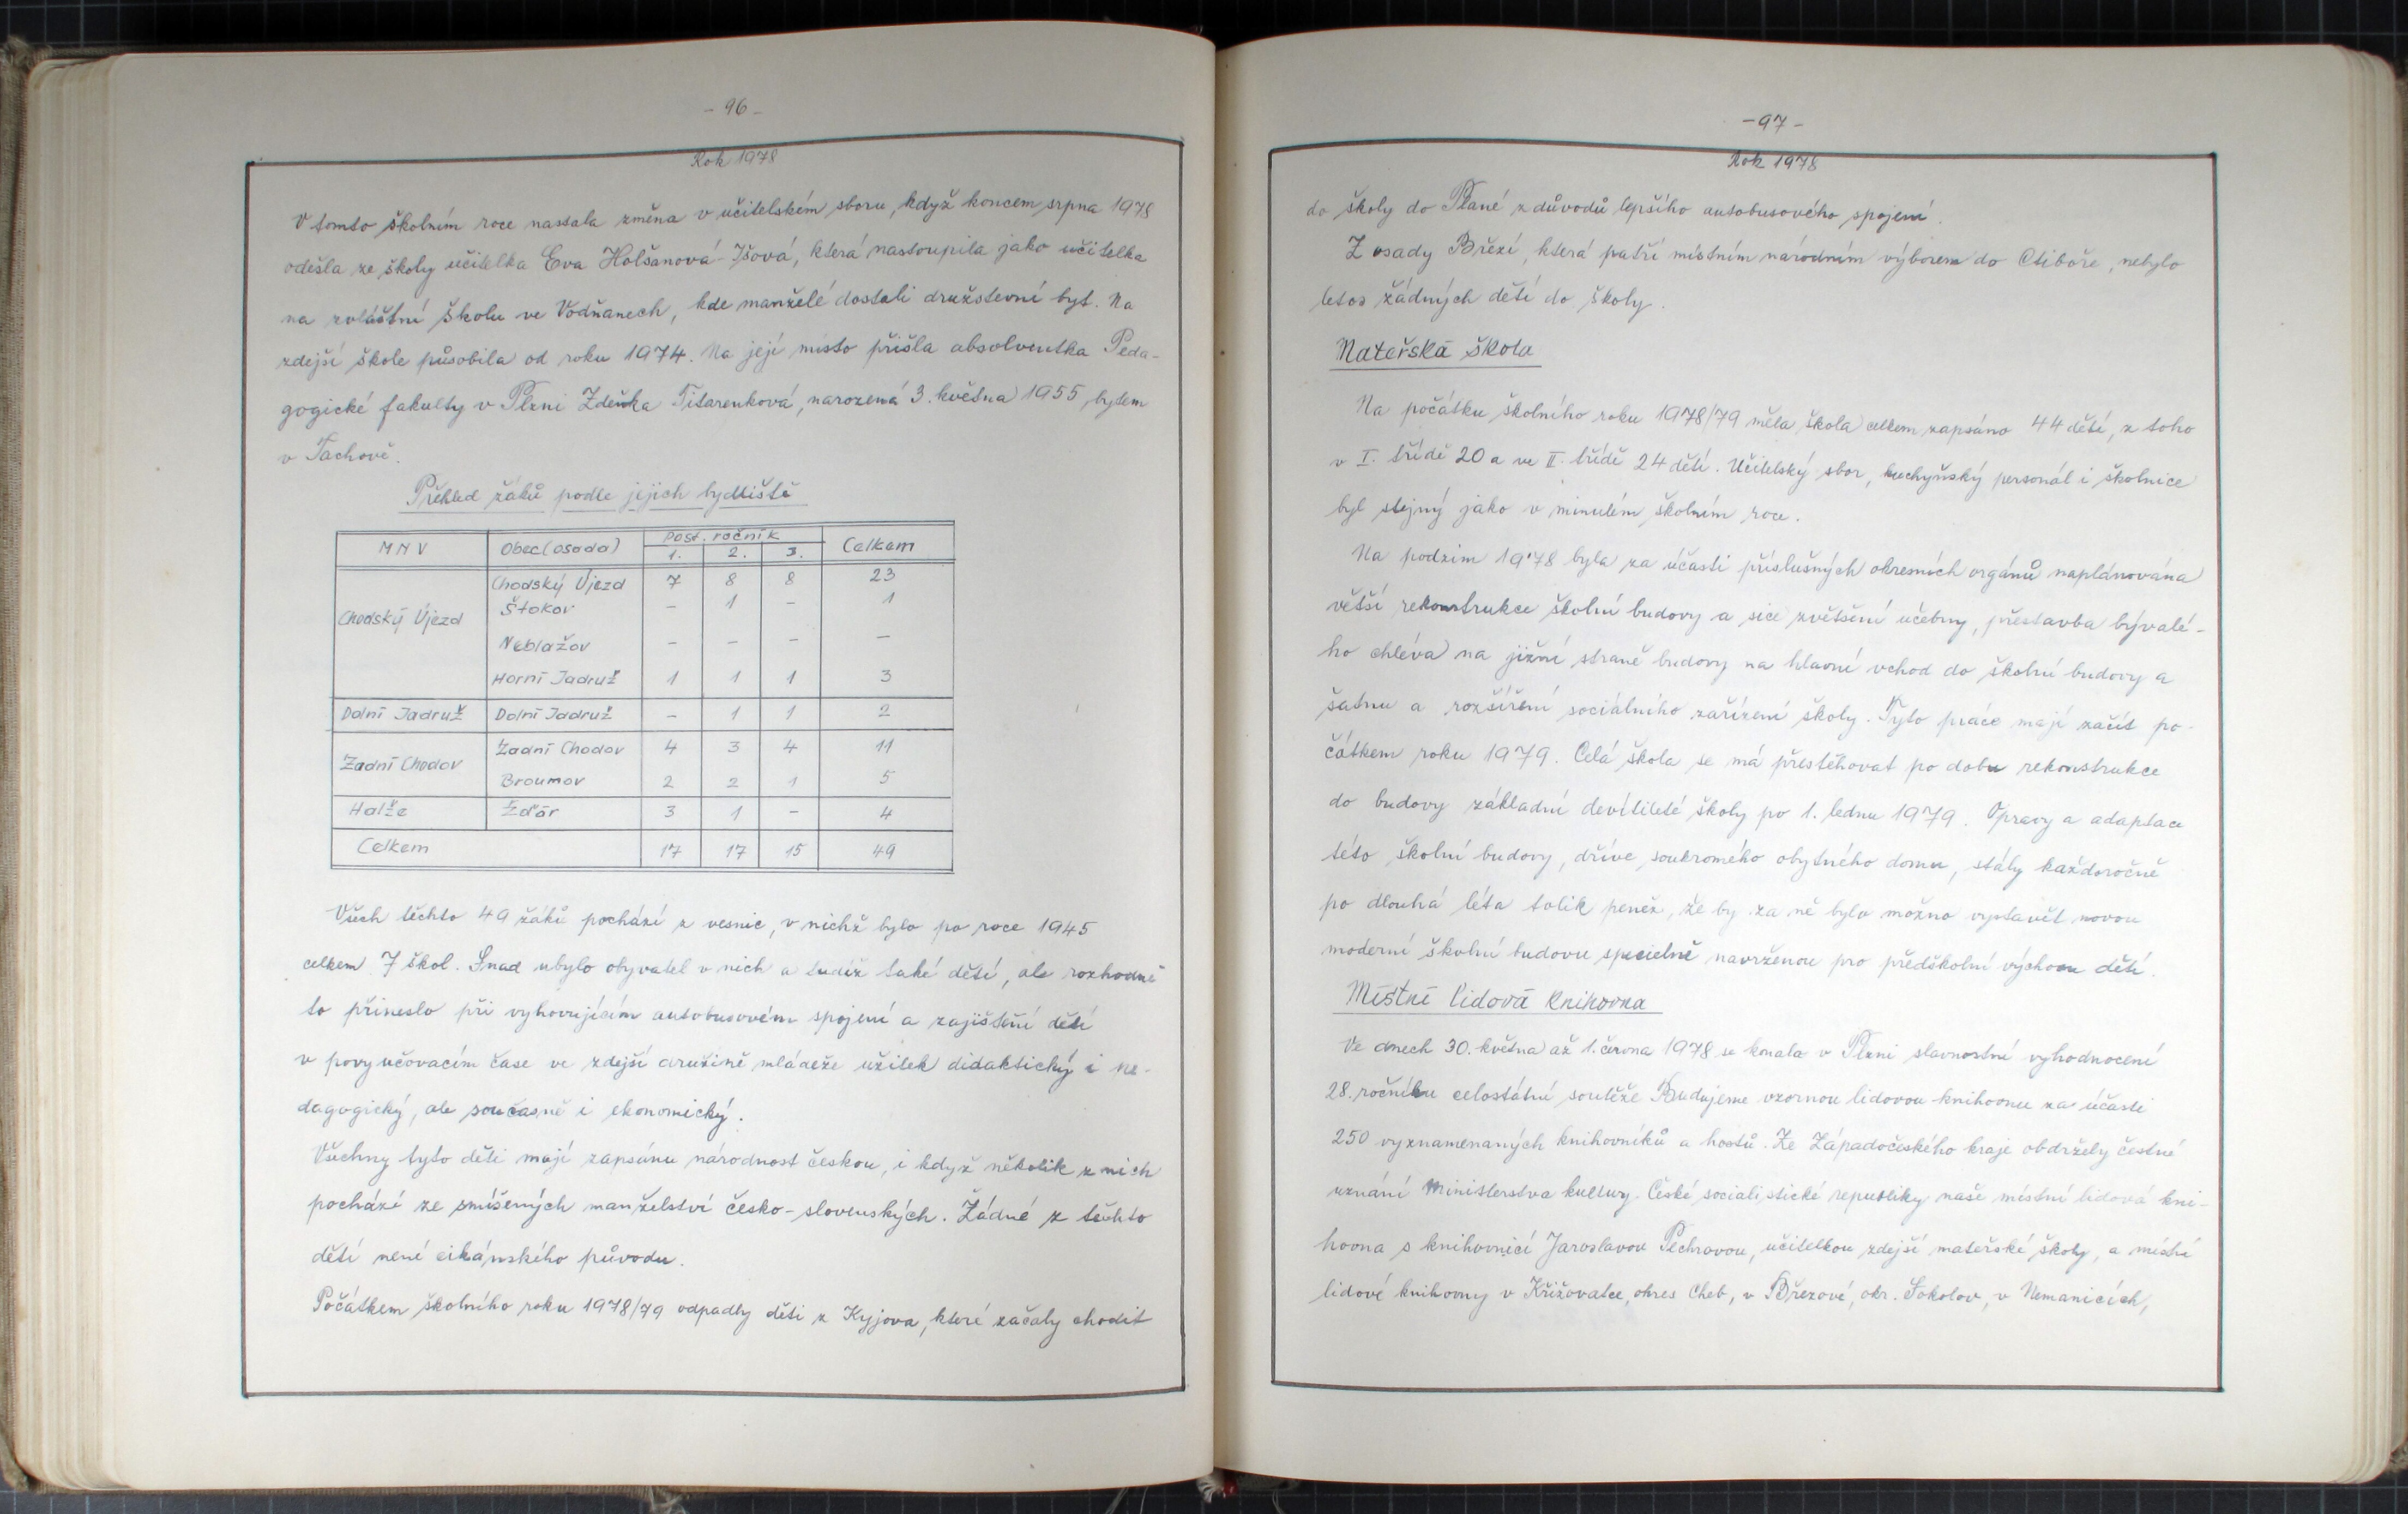 - 96 -
Rok 1978
V tomto školním roce nastala změna v učitelském sboru, když koncem srpna 1978
odešla ze školy učitelka Eva Holšanová-Išová, která nastoupila jako učitelka
na zvláštní školu ve Vodňanech, kde manželé dostali družstevní byt. Na
zdejší škole působila od roku 1974. Na její místo přišla absolventka Peda-
gogické fakulty v Plzni Zdeňka Titarenková, narozená 3. května 1955, bytem
v Tachově.
Přehled žáků podle jejich bydliště
MNV Obec (osada) Post. ročník Celkem
1. 2. 3.
Chodský Újezd 7 8 8 23
Štokov - 1 - 1
Chodský Újezd
Neblažov - - - -
Horní Jadruž 1 1 1 3
Dolní Jadruž Dolní Jadruž - 1 1 2
Zadní Chodov 4 3 4 11
Zadní Chodov
Broumov 2 2 1 5
Halže Žďár 3 1 - 4
Celkem 17 17 15 49
Všech těchto 49 žáků pochází z vesnic, v nichž bylo po roce 1945
celkem 7 škol. Snad ubylo obyvatel v nich a tudíž také dětí, ale rozhodně
to přineslo při vyhovujícím autobusovém spojení a zajištění dětí
v povyučovacím čase ve zdejší družině mládeže užitek didaktický i pe-
dagogický, ale současně i ekonomický.
Všechny tyto děti mají zapsánu národnost českou, i když několik z nich
pochází ze smíšených manželství česko-slovenských. Žádné z těchto
dětí není cikánského původu.
Počátkem školního roku 1978/79 odpadly děti z Kyjova, které začaly chodit
- 97 -
Rok 1978
do školy do Plané z důvodů lepšího autobusového spojení.
Z osady Březí, která patří místním národním výborem do Ctiboře, nebylo
letos žádných dětí do školy.
Mateřská škola
Na počátku školního roku 1978/79 měla škola celkem zapsáno 44 dětí, z toho
v I. třídě 20 a ve II. třídě 24 dětí. Učitelský sbor, kuchyňský personál i školnice
byl stejný jako v minulém školním roce.
Na podzim 1978 byla za účasti příslušných okresních orgánů naplánována
větší rekonstrukce školní budovy a sice zvětšení učebny, přestavba bývalé-
ho chléva na jižní straně budovy na hlavní vchod do školní budovy a
šatnu a rozšíření sociálního zařízení školy. Tyto práce mají začít po-
čátkem roku 1979. Celá škola se má přestěhovat po dobu rekonstrukce
do budovy základní devítileté školy po 1. lednu 1979. Opravy a adaptace
této školní budovy, dříve soukromého obytného domu, stály každoročně
po dlouhá léta tolik peněz, že by za ně bylo možno vystavět novou
moderní školní budovu specielně navrženou pro předškolní výchovu dětí.
Místní lidová knihovna
Ve dnech 30. května až 1. června 1978 se konala v Plzni slavnostní vyhodnocení
28. ročníku celostátní soutěže Budujeme vzornou lidovou knihovnu za účasti
250 vyznamenaných knihovníků a hostů. Ze Západočeského kraje obdržely čestné
uznání Ministerstva kultury České socialistické republiky naše místní lidová kni-
hovna s knihovnicí Jaroslavou Pechrovou, učitelkou zdejší mateřské školy, a místní
lidové knihovny v Křižovatce, okres Cheb, v Březové, okr. Sokolov, v Nemanicích,